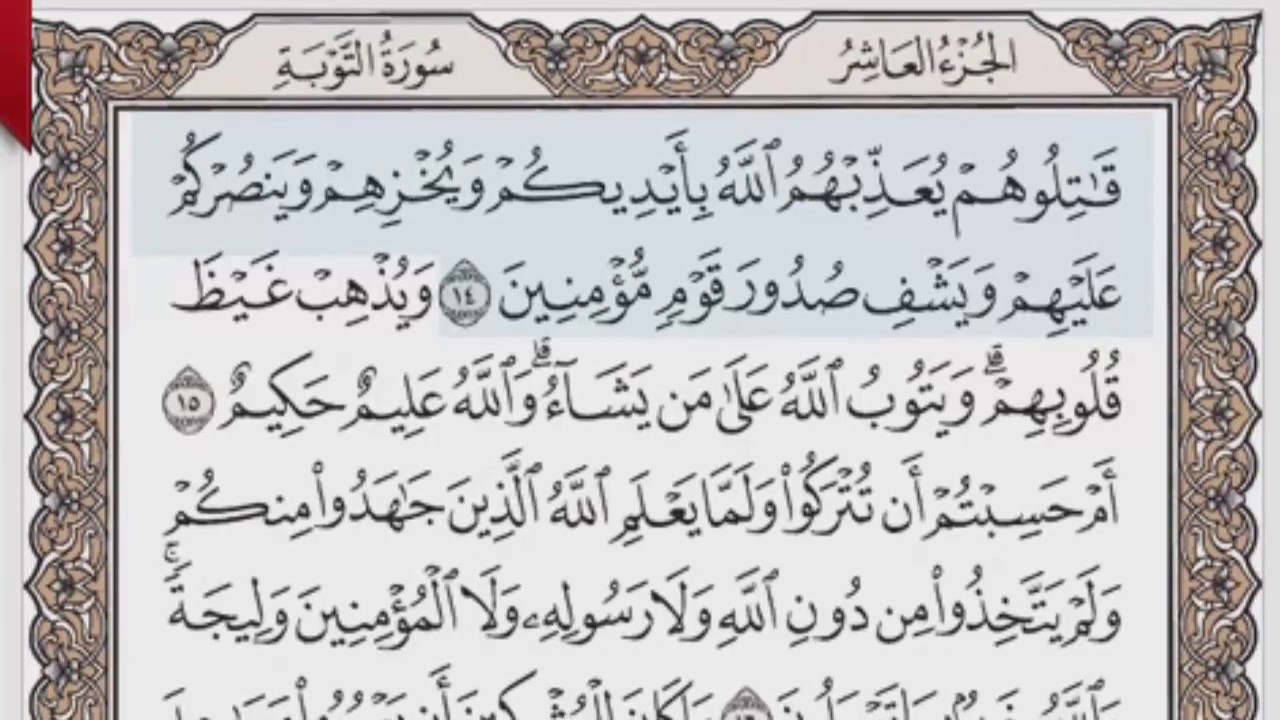 الجُزْءُ العَاشِرُ
سُورَةُ التَّوْبَةِ
قَٰتِلُوهُمْ يُعَذِّبْهُمُ ٱللَّهُ بِأَيْدِيكُمْ وَيُخْزِهِمْ وَيَنصُرْكُمْ
عَلَيْهِمْ وَيَشْفِ صُدُورَ قَوْمٍ مُّؤْمِنِينَ ١٤ وَيُذْهِبْ غَيْظَ
قُلُوبِهِمْ ۗ وَيَتُوبُ ٱللَّهُ عَلَىٰ مَن يَشَآءُ ۗ وَٱللَّهُ عَلِيمٌ حَكِيمٌ ١٥
أَمْ حَسِبْتُمْ أَن تُتْرَكُوا۟ وَلَمَّا يَعْلَمِ ٱللَّهُ ٱلَّذِينَ جَٰهَدُوا۟ مِنكُمْ
وَلَمْ يَتَّخِذُوا۟ مِن دُونِ ٱللَّهِ وَلَا رَسُولِهِۦ وَلَا ٱلْمُؤْمِنِينَ وَلِيجَةً ۚ